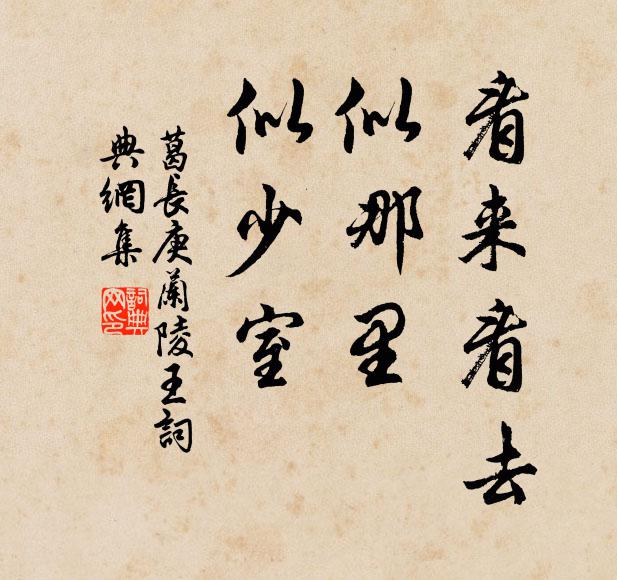 看来看去
似那里
似少室
葛長庚蘭陵王詞
典網集
詞典
网印